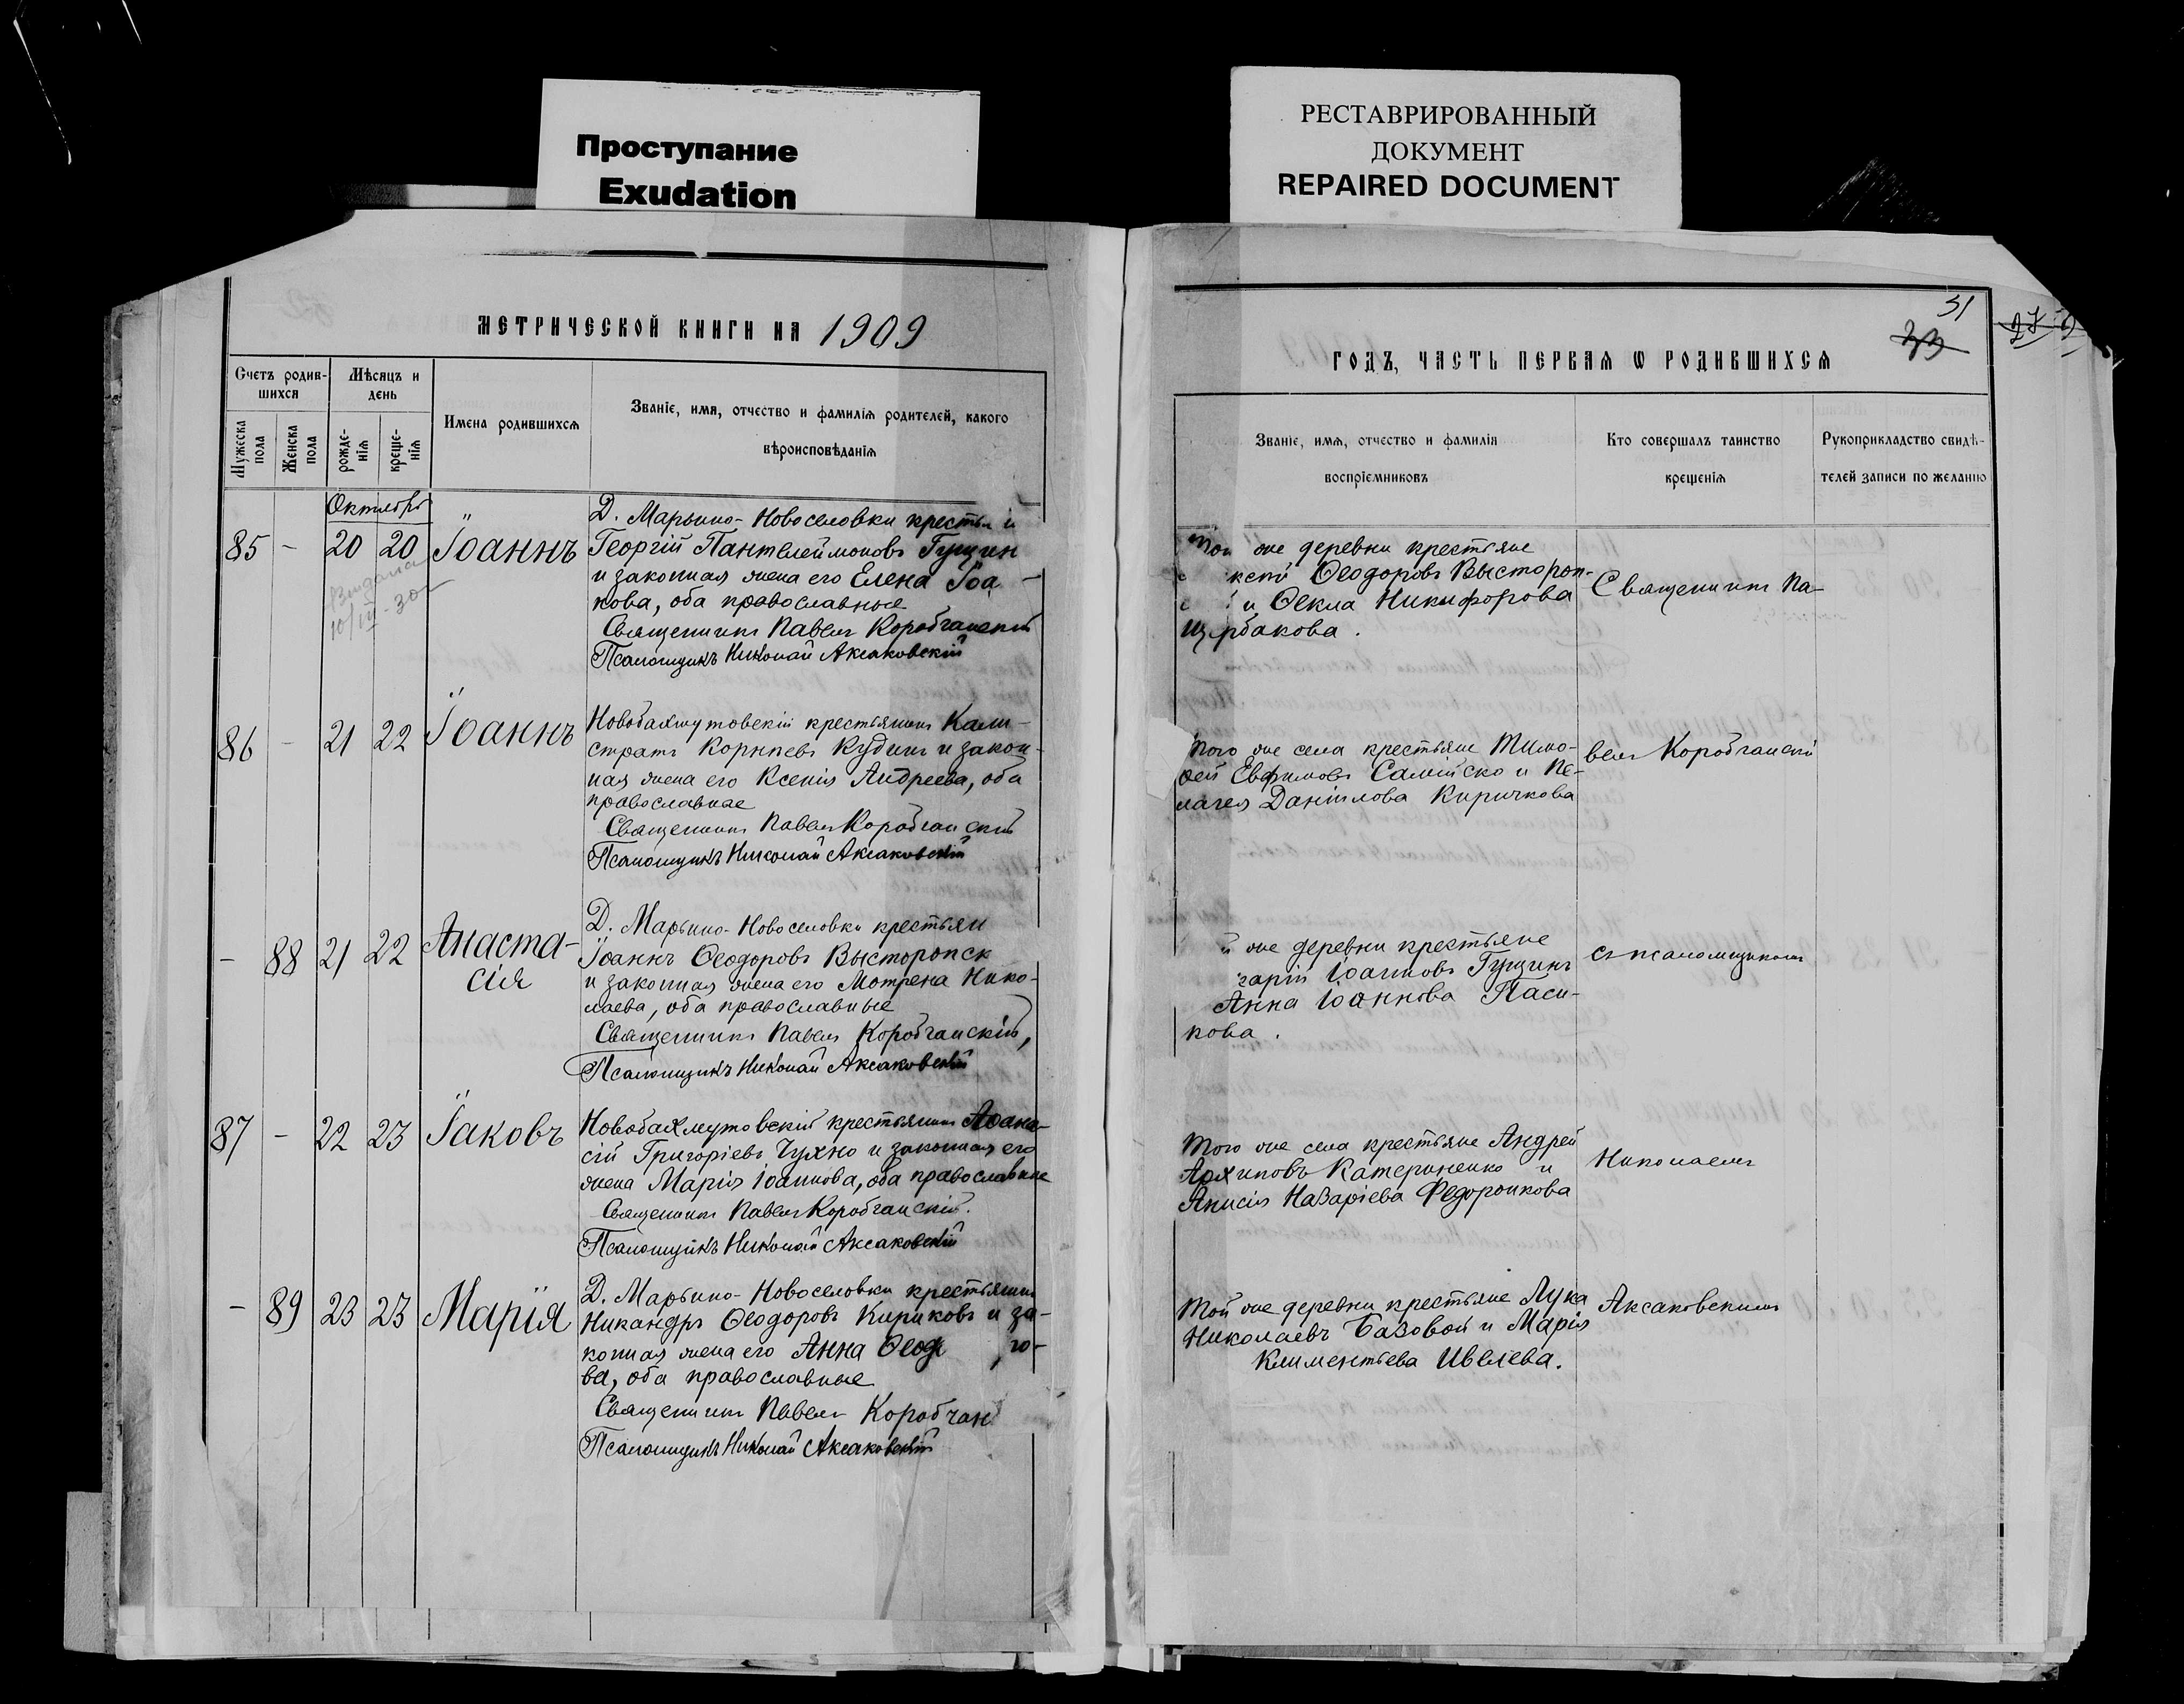 Проступание
Exudation
РЕСТАВРИРОВАННЫЙ
ДОКУМЕНТ
REPAIRED DOCUMENT
МЕТРИЧЕСКОЙ КНИГИ НА 1909
Счетъ родив-
шихся
Мѣсяцъ и
день
Имена родившихся
Званіе, имя, отчество и фамилія родителей, какого
вѣроисповѣданія
Мужеска
пола
Женска
пола
рожде-
нія
креще-
нія
Октябрь
85 - 20 20 Іоаннъ
Д. Марьино-Новоселовки
Георгій Пантелеймоновъ Гущин
и законная жена его Елена Іоа-
кова, оба православные
Священникъ Павелъ Коробчанскій
Псаломщикъ Николай Аксаковскій
86 - 21 22 Іоаннъ
Новобахмутовскій крестьянинъ Кали-
стратъ Корнѣевъ Кудинъ и закон-
ная жена его Ксенія Андреева, оба
православные
Священникъ Павелъ Коробчанскій
Псаломщикъ Николай Аксаковскій
- 88 21 22 Анаста-
сія
Д. Марьино-Новоселовки крестьян
Іоаннъ Ѳеодоровъ Высторопск
и законная жена его Мотрена Нико-
лаева, оба православные
Священникъ Павелъ Коробчанскій,
Псаломщикъ Николай Аксаковскій
87 - 22 23 Іаковъ
Новобахмутовскій крестьянинъ Аѳана-
сій Григоріевъ Чухно и законная его
жена Марія Іоаннова, оба православные
Священникъ Павелъ Коробчанскій.
Псаломщикъ Николай Аксаковскій
- 89 23 23 Марія
Д. Марьино-Новоселовки крестьянинъ
Никандръ Ѳеодоровъ Кириковъ и за-
конная жена его Анна Ѳеод
ва, оба православные
Священникъ Павелъ Коробчан
Псаломщикъ Николай Аксаковскій
31
ГОДЪ, ЧАСТЬ ПЕРВАЯ Ѡ РОДИВШИХСЯ
Званіе, имя, отчество и фамилія
воспріемниковъ
Кто совершалъ таинство
крещенія
Рукоприкладство свидѣ-
телей записи по желанію
Той же деревни крестьяне
Ѳеодоровъ Выстороп-
и Ѳекла Никифорова
Щербакова.
Священникъ Па-
Того же села крестьяне Тимо-
ѳей Евфимовъ Самійско и Пе-
лагея Даніилова Киричкова
велъ Коробчанскій
же деревни крестьяне
Іоанновъ Гущинъ
Анна Іоаннова Паси-
кова.
съ псаломщикомъ
Того же села крестьяне Андрей
Архиповъ Катериненко и
Анисія Назаріева Федоронкова
Николаемъ
Той же деревни крестьяне Лука
Николаевъ Базовой и Марія
Климентьева Ивлева.
Аксаковскимъ